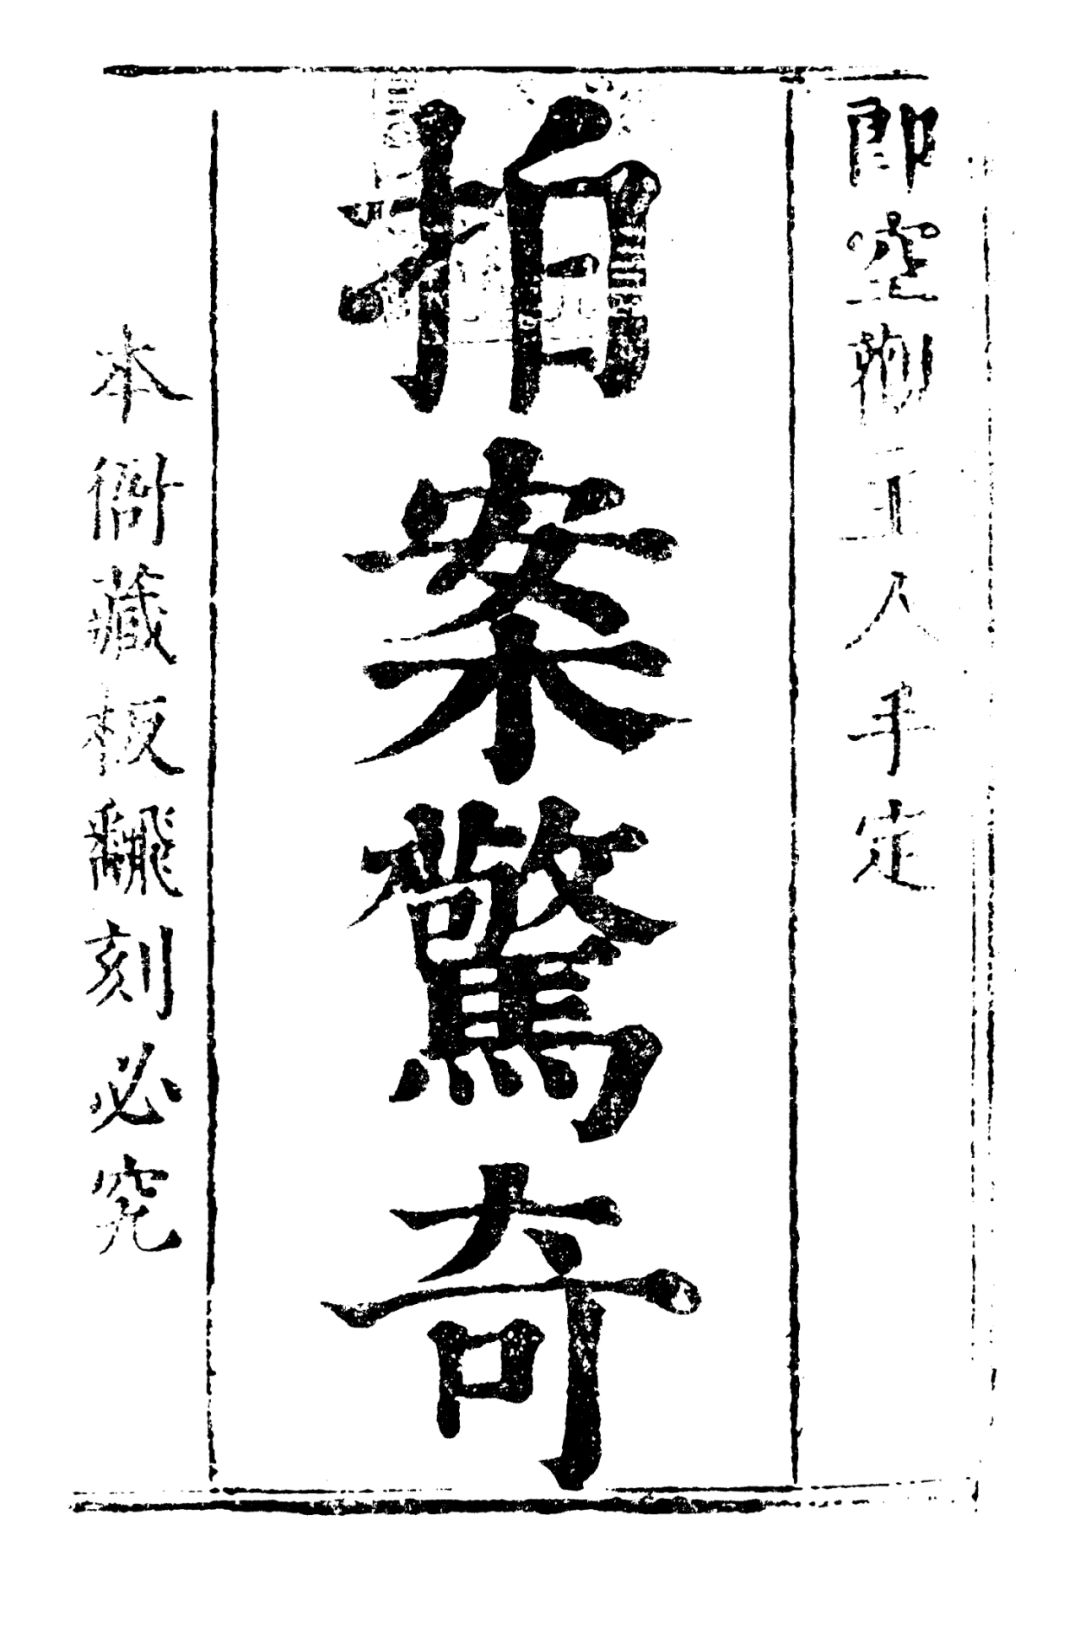 即空觀主人手定
拍案驚奇
本衙藏板飜刻必究